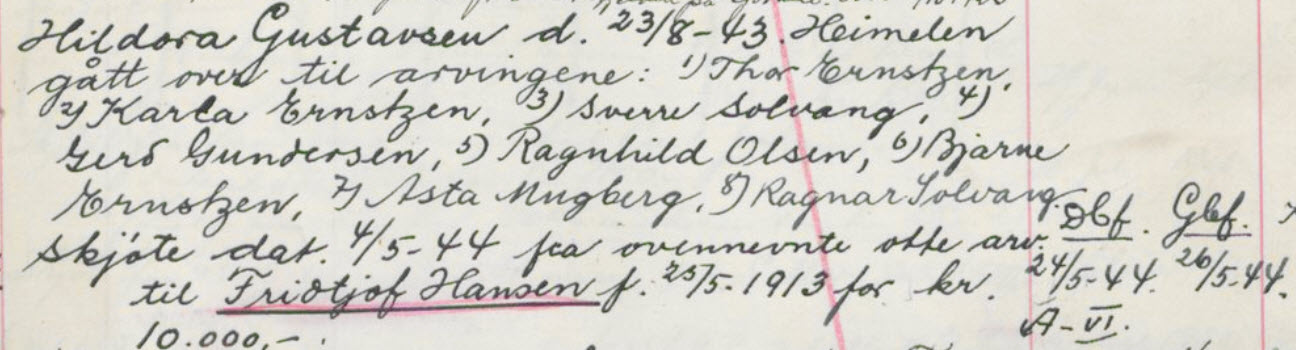 Hildora Gustavsen d. 23/8-43. Heimelen
gått over til arvingene: 1) Thor Ernstzen,
2) Karla Ernstzen, 3) Sverre Solvang, 4)
Gerd Gundersen, 5) Ragnhild Olsen, 6) Bjarne
Ernstzen, 7) Asta Mugberg, 8) Ragnar Solvang.
Skjøte dat. 4/5-44 fra ovennevnte otte arv. Dbf. Gbf.
til Fridtjof Hansen f. 25/5-1913 for kr. 24/5-44. 26/5-44.
10.000,-. A-VI.